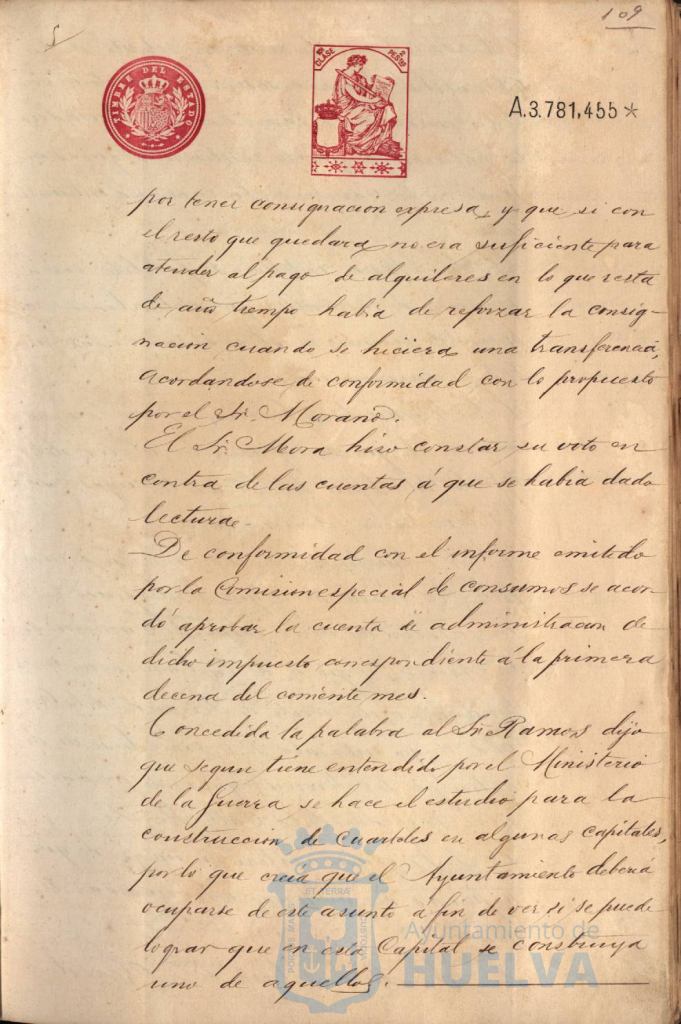 109
TIMBRE DEL ESTADO
10ª CLASE
2 PESTAS
A.3.781,455*
por tener consignación expresa, y que si con
el resto que quedara, no era suficiente para
atender al pago de alquileres en lo que resta
de año tiempo habia de reforzar la consig-
nacion cuando se hiciera una transferencia,
acordandose de conformidad con lo propuesto
por el Sr. Morano.
El Sr. Mora hiso constar su voto en
contra de las cuentas á que se habia dado
lectura.
De conformidad con el informe emitido
por la Comision especial de consumos se acor-
dó aprobar la cuenta de administracion de
dicho impuesto correspondiente á la primera
decena del corriente mes.
Concedida la palabra al Sr. Ramos dijo
que segun tiene entendido por el Ministerio
de la Guerra se hace el estudio para la
construccion de Cuarteles en algunas capitales,
por lo que creia que el Ayuntamiento deberá
ocuparse de este asunto á fin de ver si se puede
lograr que en esta Capital se construya
uno de aquellos.
Ayuntamiento de
HUELVA